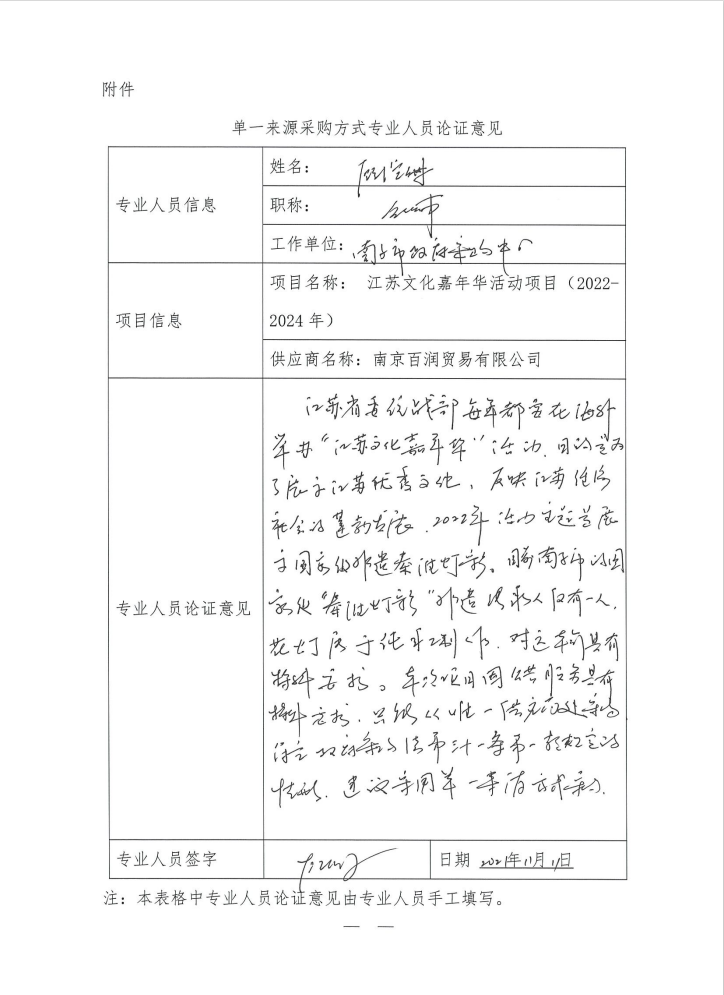 附件
单一来源采购方式专业人员论证意见
专业人员信息
姓名:
职称:
工作单位: 南京市政府采购中心
项目信息
项目名称: 江苏文化嘉年华活动项目(2022-
2024年)
供应商名称:南京百润贸易有限公司
专业人员论证意见
江苏省委统战部每年都会在海外
举办“江苏文化嘉年华”活动,目的是为
了展示江苏优秀文化,反映江苏经济
社会的蓬勃发展,2022年活动主题为展
示国家级非遗秦淮灯彩。目前南京市的国
家级“秦淮灯彩”非遗传承人仅有一人,
花灯属于纯手工制作,对运输具有
特殊要求。本次项目因公共服务具有
特殊要求,只能从唯一供应商处采购
符合政府采购法第三十一条第一款规定的
情形,建议采用单一来源方式采购。
专业人员签字
日期 2021年11月11日
注:本表格中专业人员论证意见由专业人员手工填写。
— —